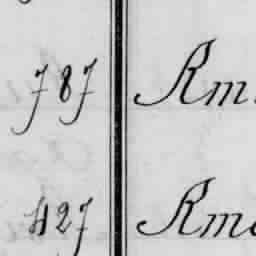 787 Am
427 Am